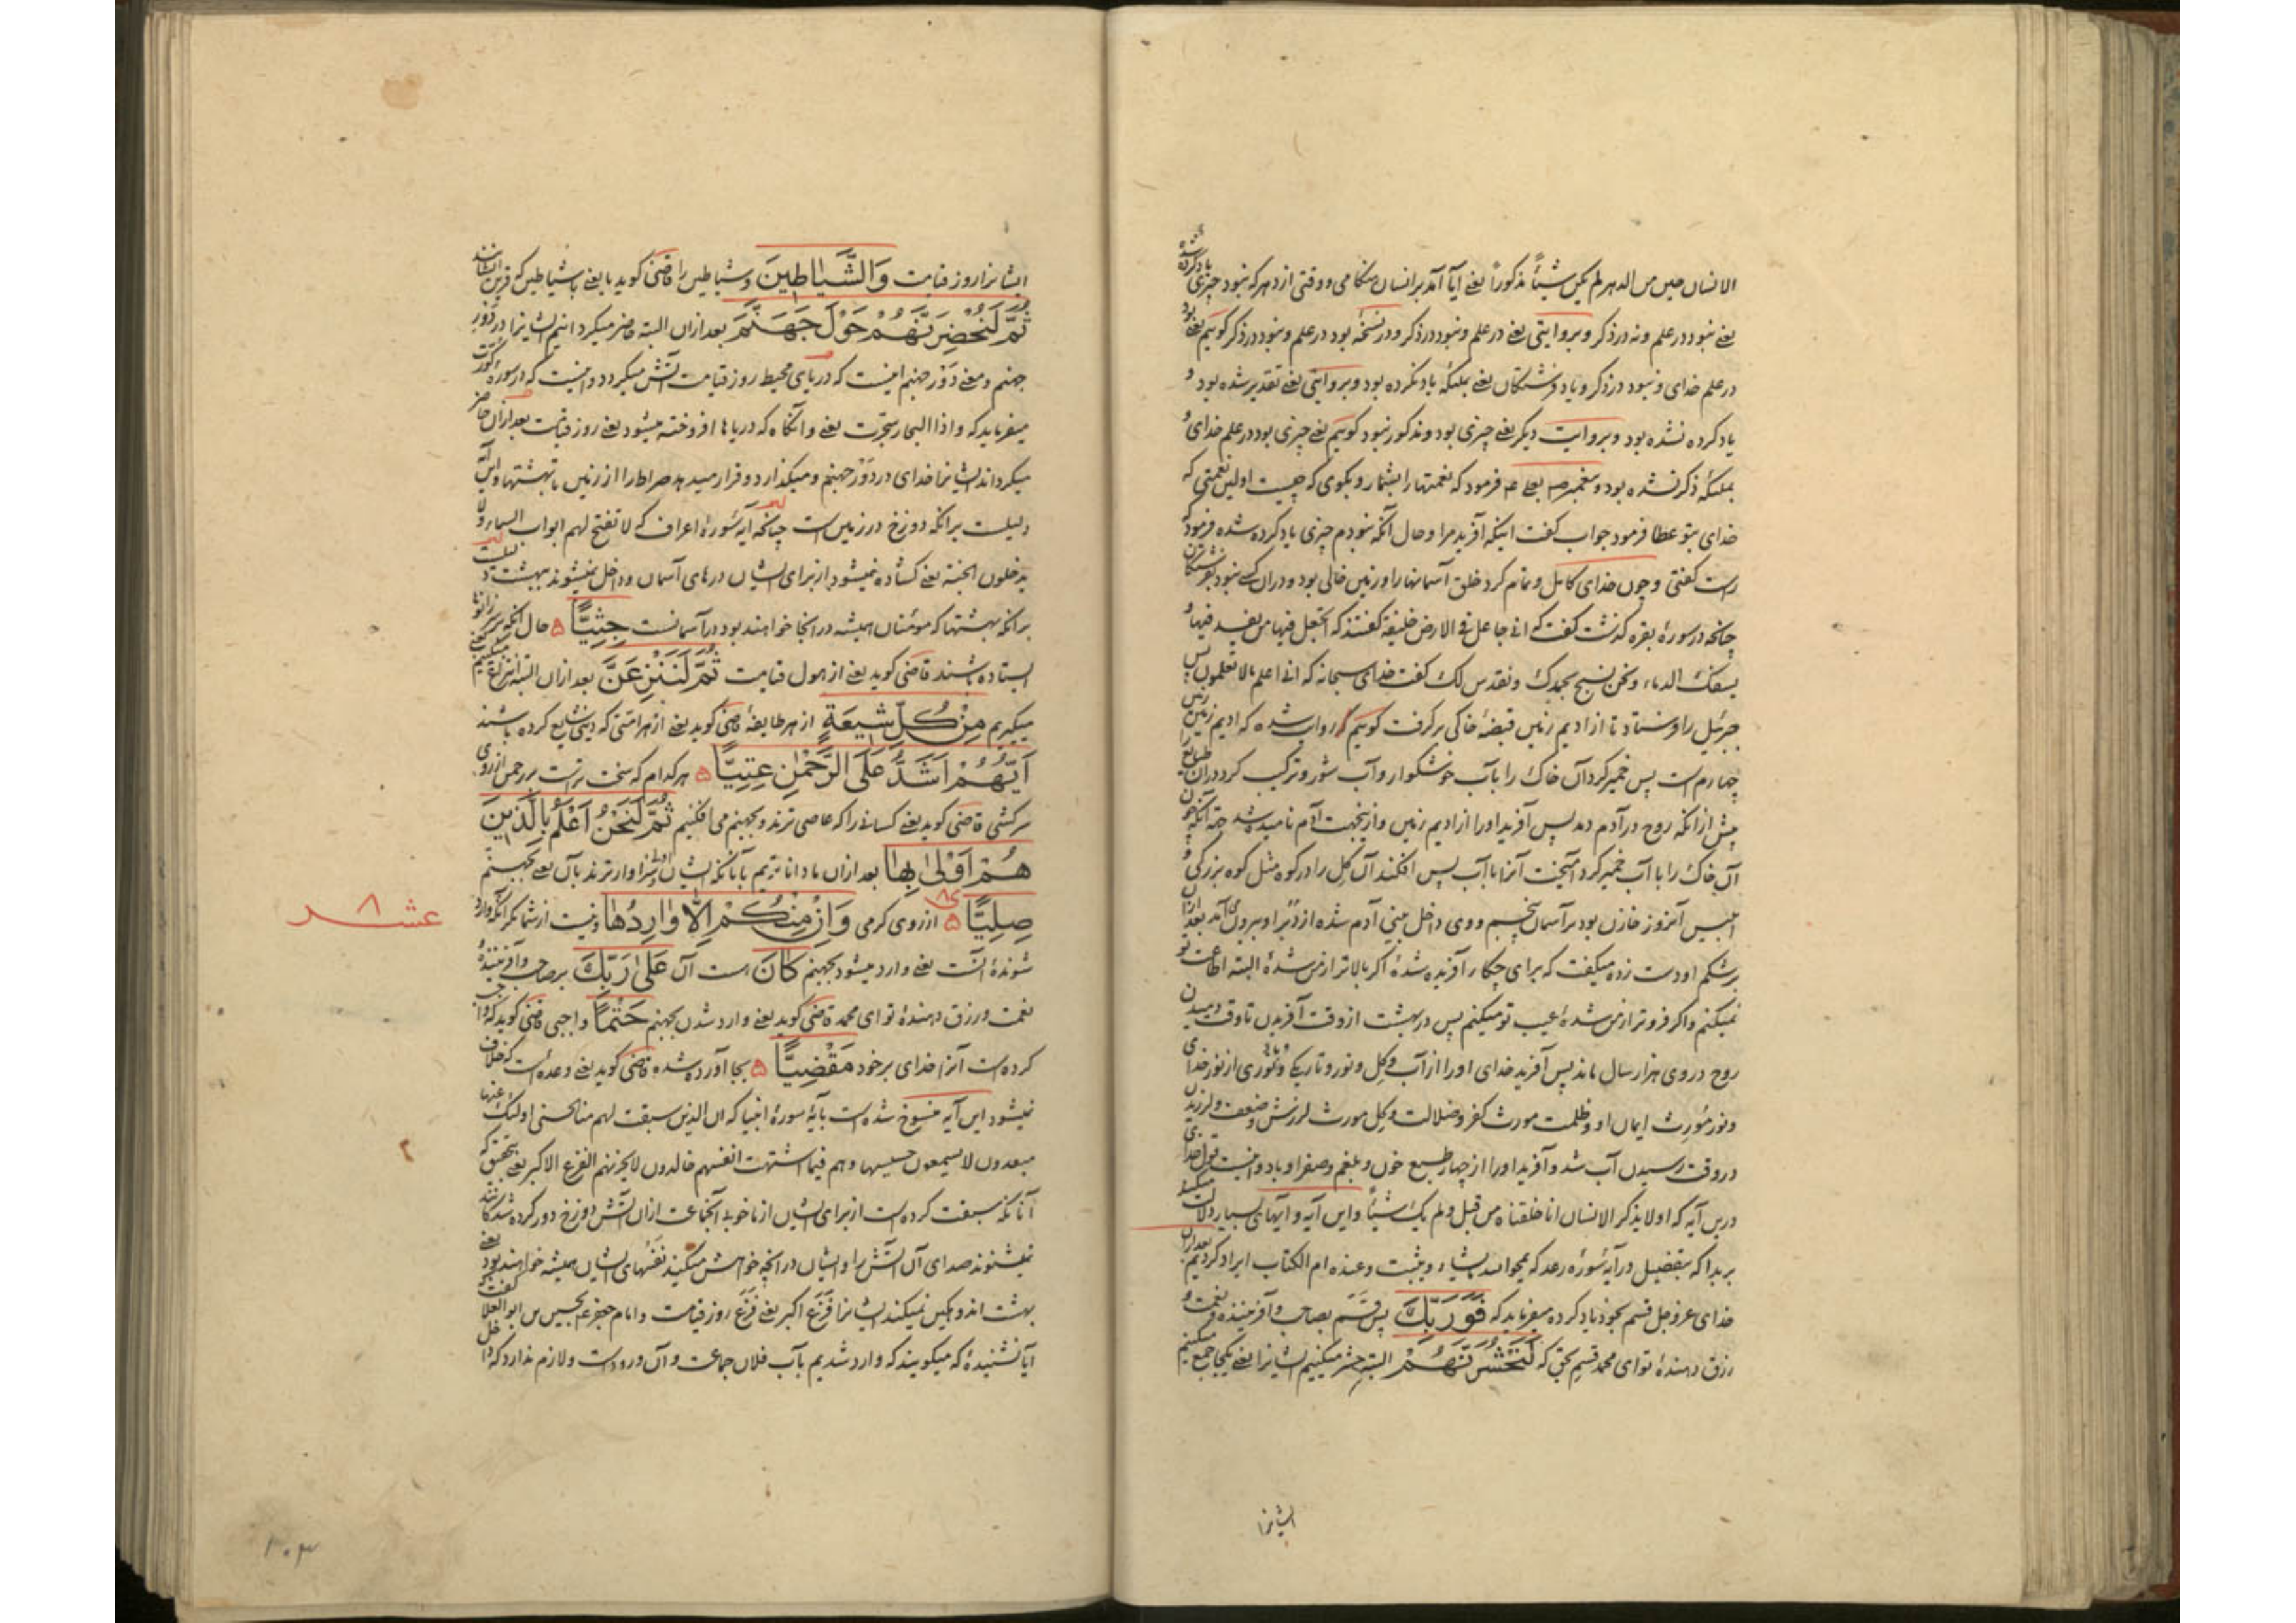 الانسان حین من الدهر لم یکن شیئاً مذکوراً یعنی آیا آمد بر انسان هنکامی و وقتی از دهر که نبود چیزی یاد کرده شده
یعنی نبود در علم و نه در ذکر و بروایتی یعنی در علم و نبود در ذکر و در نسخه بود در علم و نبود در ذکر کوییم یعنی بود
در علم خدای و نبود در ذکر و یاد فرشتکان یعنی بملئکه یاد نکرده بود و بروایتی یعنی تقدیر شده بود و
یاد کرده نشده بود و بروایت دیکر یعنی چیزی بود و مذکور نبود کوییم یعنی چیزی بود در علم خدای و
بملئکه ذکر نشده بود و پیغمبر ص بعلی ع فرمود که نعمتها را بشمار و بکوی که چیست اولین نعمتی که
خدای بتو عطا فرمود جواب کفت اینکه آفرید مرا و حال آنکه نبودم چیزی یاد کرده شده فرمود که
راست کفتی و چون خدای کامل و تمام کرد خلق آسمانها را و زمین خالی بود و در آن کسی نبود بفرشتکان
چنانچه در سورهٔ بقره که نشت کفت که انی جاعل فی الارض خلیفه کفتند که اتجعل فیها من یفسد فیها و
یسفک الدماء و نحن نسبح بحمدک و نقدس لک کفت خدای سبحانه که انی اعلم مالا تعلمون پس
جبرئیل را فرستاد تا از ادیم زمین قبضهٔ خاکی برکرفت کوییم که روایت شده که ادیم زمین زمین
چهارم است پس خمیر کرد آن خاک را بآب خوشکوار و آب شور و ترکیب کرد در آن طبایع
پیش از آنکه روح در آدم دمد پس آفرید او را از ادیم زمین و ازینجهت آدم نامیده شد جهة آنکه چون
آن خاک را با آب خمیر کرد آمیخت آنرا با آب پس افکند آن کل را در کوه مثل کوه بزرکی و
ابلیس آنروز خازن بود بر آسمان پنجم و وی داخل بینی آدم شده از دُبر او بیرون می آمد بعد ازان
بر شکم او دست زده میکفت که برای چکار آفریده شدهٔ اکر بالاتر از من شدهٔ البته اطاعت تو
نمیکنم و اکر فروتر از من شدهٔ عیب تو میکنم پس در بهشت از وقت آفریدن تا وقت دمیدن
روح در وی هزار سال ماند پس آفرید خدای او را از آب و کل و نور و تاریکی و بادی و نوری از نور خدای
و نور مُورث ایمان او و ظلمت مورث کفر و ضلالت و کل مورث لرزش و ضعف و لرزیدن
در وقت رسیدن آب شد و آفرید او را از چهار طبع خون و بلغم و صفرا و باد و اینست قول خدای
درین آیه که اولا یذکر الانسان انا خلقناه من قبل و لم یک شیئاً و این آیه و آیهای بسیار دلالت میکند
بر بدا که بتفضیل در آیه سُورهٔ رعد که یمحوا الله ما یشاء و یثبت و عنده ام الکتاب ایراد کردیم بعد ازان
خدای عز و جل قسم بخود یاد کرده میفرماید که فَوَرَبِّكَ پس قسم بصاحب و آفرینندهٔ نعمت و
رزق دهندهٔ تو ای محمد قسم بحق که لَنَحْشُرَنَّهُمْ البته حشر میکنیم ایشانرا یعنی یکجا جمع میکنیم
ایشانرا
ایشانرا روز قیامت وَالشَّيَاطِينَ و شیاطین را قاضی کوید یا یعنی با شیاطین که قرین ایشانند
ثُمَّ لَنُحْضِرَنَّهُمْ حَوْلَ جَهَنَّمَ بعد ازان البته حاضر میکردانیم ایشانرا در دَوْرِ
جهنم و معنی دَوْر جهنم اینست که دریای محیط روز قیامت آتش میکردد و اینست که در سوره کورت
میفرماید که و اذا البحار سجرت یعنی و آنکاه که دریاها افروخته میشود یعنی روز قیامت بعد ازان حاضر
میکرداند ایشانرا خدای در دَوْر جهنم و میکذارد و قرار میدهد صراط را از زمین تا بهشتها و این آیه
دلیلست بر آنکه دوزخ در زمین است چنانکه آیه سُورهٔ اعراف که لا تفتح لهم ابواب السماء و لا
یدخلون الجنة یعنی کشاده نمیشود از برای ایشان درهای آسمان و داخل نمیشوند ببهشت دلیلست
بر آنکه بهشتها که مومنان همیشه در آنجا خواهند بود در آسمانست جِثِيًّا ۵ حال آنکه بر سر زانوها
ایستاده باشند قاضی کوید یعنی از هول قیامت ثُمَّ لَنَنْزِعَنَّ بعد ازان البته انتزاع میکنیم یعنی
میکیریم مِنْ كُلِّ شِيعَةٍ از هر طایفهٔ قاضی کوید یعنی از هر امّتی که دینی شایع کرده باشند
أَيُّهُمْ أَشَدُّ عَلَى الرَّحْمٰنِ عِتِيًّا ۵ هر کدام که سخت ترست بر رحمن از روی
سرکشی قاضی کوید یعنی کسانی را که عاصی ترند بجهنم می افکنیم ثُمَّ لَنَحْنُ أَعْلَمُ بِالَّذِينَ
هُمْ أَوْلىٰ بِهَا بعد ازان ما داناتریم بآنانکه ایشان اولی و سزاوارترند بآن یعنی بجهنم
صِلِيًّا ۵ از روی کرمی وَإِنْ مِنْكُمْ إِلَّا وَارِدُهَا و نیست از شما مکر آنکه وارد
عشر ۸
شوندهٔ آنست یعنی وارد میشود بجهنم كَانَ است آن عَلىٰ رَبِّكَ بر صاحب و آفرینندهٔ
نعمت و رزق دهندهٔ تو ای محمد قاضی کوید یعنی وارد شدن بجهنم حَتْمًا واجبی قاضی کوید که واجب
کرده است آنرا خدای بر خود مَقْضِيًّا ۵ بجا آورده شده قاضی کوید یعنی وعده است که خلاف
نمیشود این آیه منسوخ شده است بآیهٔ سورهٔ انبیا که ان الذین سبقت لهم منا الحسنی اولئک عنها
مبعدون لا یسمعون حسیسها و هم فیما اشتهت انفسهم خالدون لا یحزنهم الفزع الاکبر یعنی بتحقیق که
آنانکه سبقت کرده است از برای ایشان از ما خوبی آنجماعت ازان آتش دوزخ دور کرده شدکانند
نمیشنوند صدای آن آتش را و ایشان در آنچه خواهش میکنید نفسهای ایشان همیشه خواهند بود یعنی
بهشت اندوهکین نمیکند ایشانرا فَزَع اکبر یعنی فَزَع روز قیامت و امام جعفر ع بحسین بن ابو العلا کفت
آیا نشنیدهٔ که میکویند که وارد شدیم بآب فلان جماعت و آن ورودست و لازم ندارد که داخل
۱۰۳